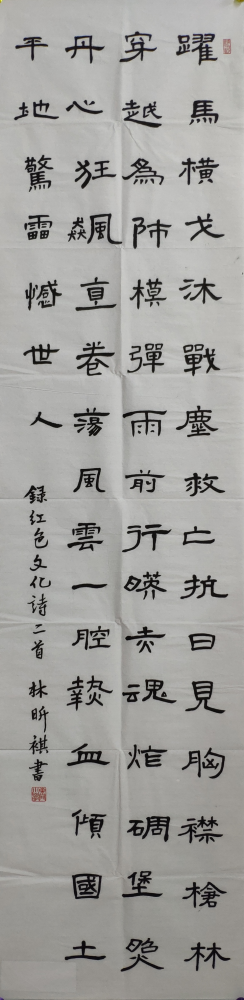 躍馬橫戈沐戰塵救亡抗日見胸襟槍林
穿越為師模彈雨前行暎赤魂炸碉堡照
丹心狂飆直卷蕩風雲一腔熱血傾國土
平地驚雷憾世人
録红色文化詩二首 林昕褀書